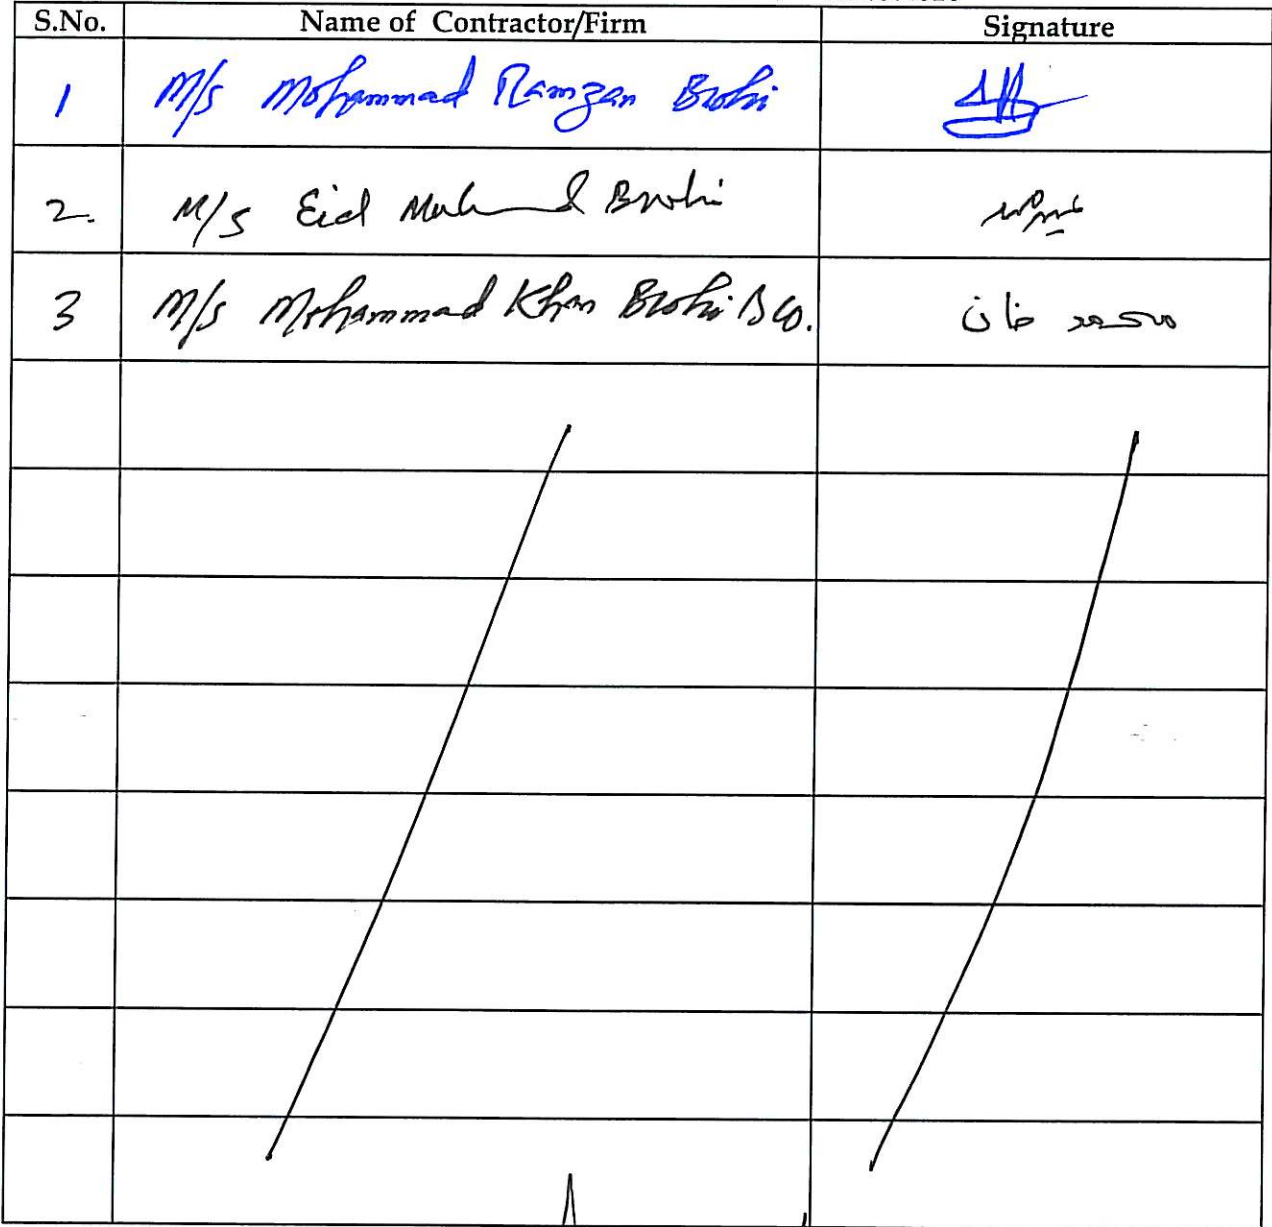 S.No. Name of Contractor/Firm Signature
1 M/s Mohammad Ramzan Brohi
2. M/s Eid Muhammad Brohi
3 M/s Mohammad Khan Brohi & Co. محمد خان